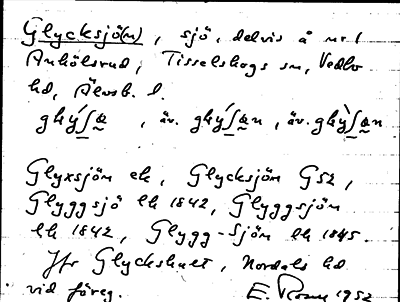 Glycksjö(n), sjö, delvis å nr 1
Anhölsrud, Tisselskogs sn, Vedbo
hd, Älvsb. l.
, äv. , äv.
Glyxsjön ek, Glycksjön G52,
Glyggsjö lk 1842, Glyggsjön
lk 1842, Glygg-Sjön lk 1845.
Jfr Glyckshult, Nordals hd
vid föreg. E. 1952